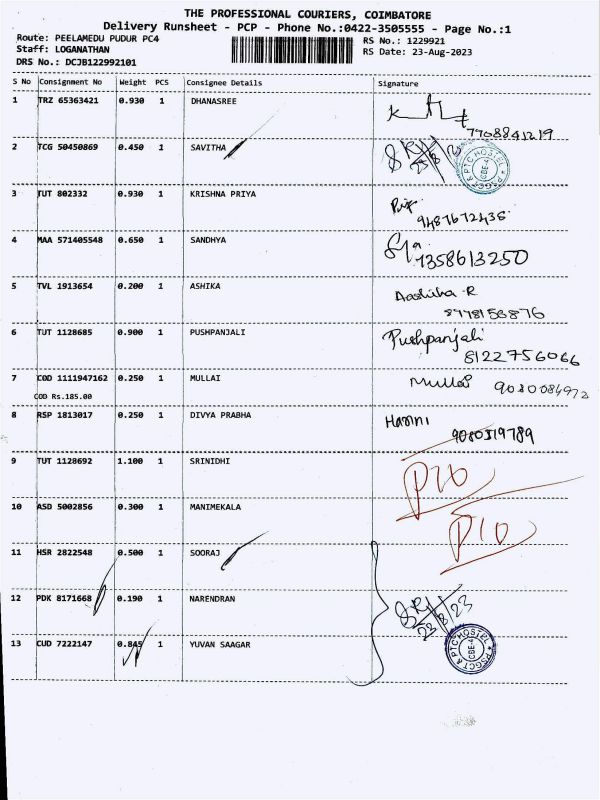 THE PROFESSIONAL COURIERS, COIMBATORE
Delivery Runsheet - PCP - Phone No.:0422-3505555 - Page No.:1
Route: PEELAMEDU PUDUR PC4
RS No.: 1229921
Staff: LOGANATHAN
RS Date: 23-Aug-2023
DRS No.: DCJB122992101
S No Consignment No Weight PCS Consignee Details Signature
1 TRZ 65363421 0.930 1 DHANASREE
7708841219
2 TCG 50450869 0.450 1 SAVITHA
PSGCT & PTC HOSTEL CBE-4
3 TUT 802332 0.930 1 KRISHNA PRIYA
9487672436
4 MAA 571405548 0.650 1 SANDHYA
7358613250
5 TVL 1913654 0.200 1 ASHIKA Aashika R
8778153876
6 TUT 1128685 0.900 1 PUSHPANJALI Pushpanjali
8122756066
7 COD 1111947162 0.250 1 MULLAI Mullai 9080084972
COD Rs.185.00
8 RSP 1813017 0.250 1 DIVYA PRABHA Harini
9080519789
9 TUT 1128692 1.100 1 SRINIDHI
10 ASD 5002856 0.300 1 MANIMEKALA
11 HSR 2822548 0.500 1 SOORAJ
12 PDK 8171668 0.190 1 NARENDRAN
23/8/23
13 CUD 7222147 0.845 1 YUVAN SAAGAR
PSGCT & PTC HOSTEL CBE-4